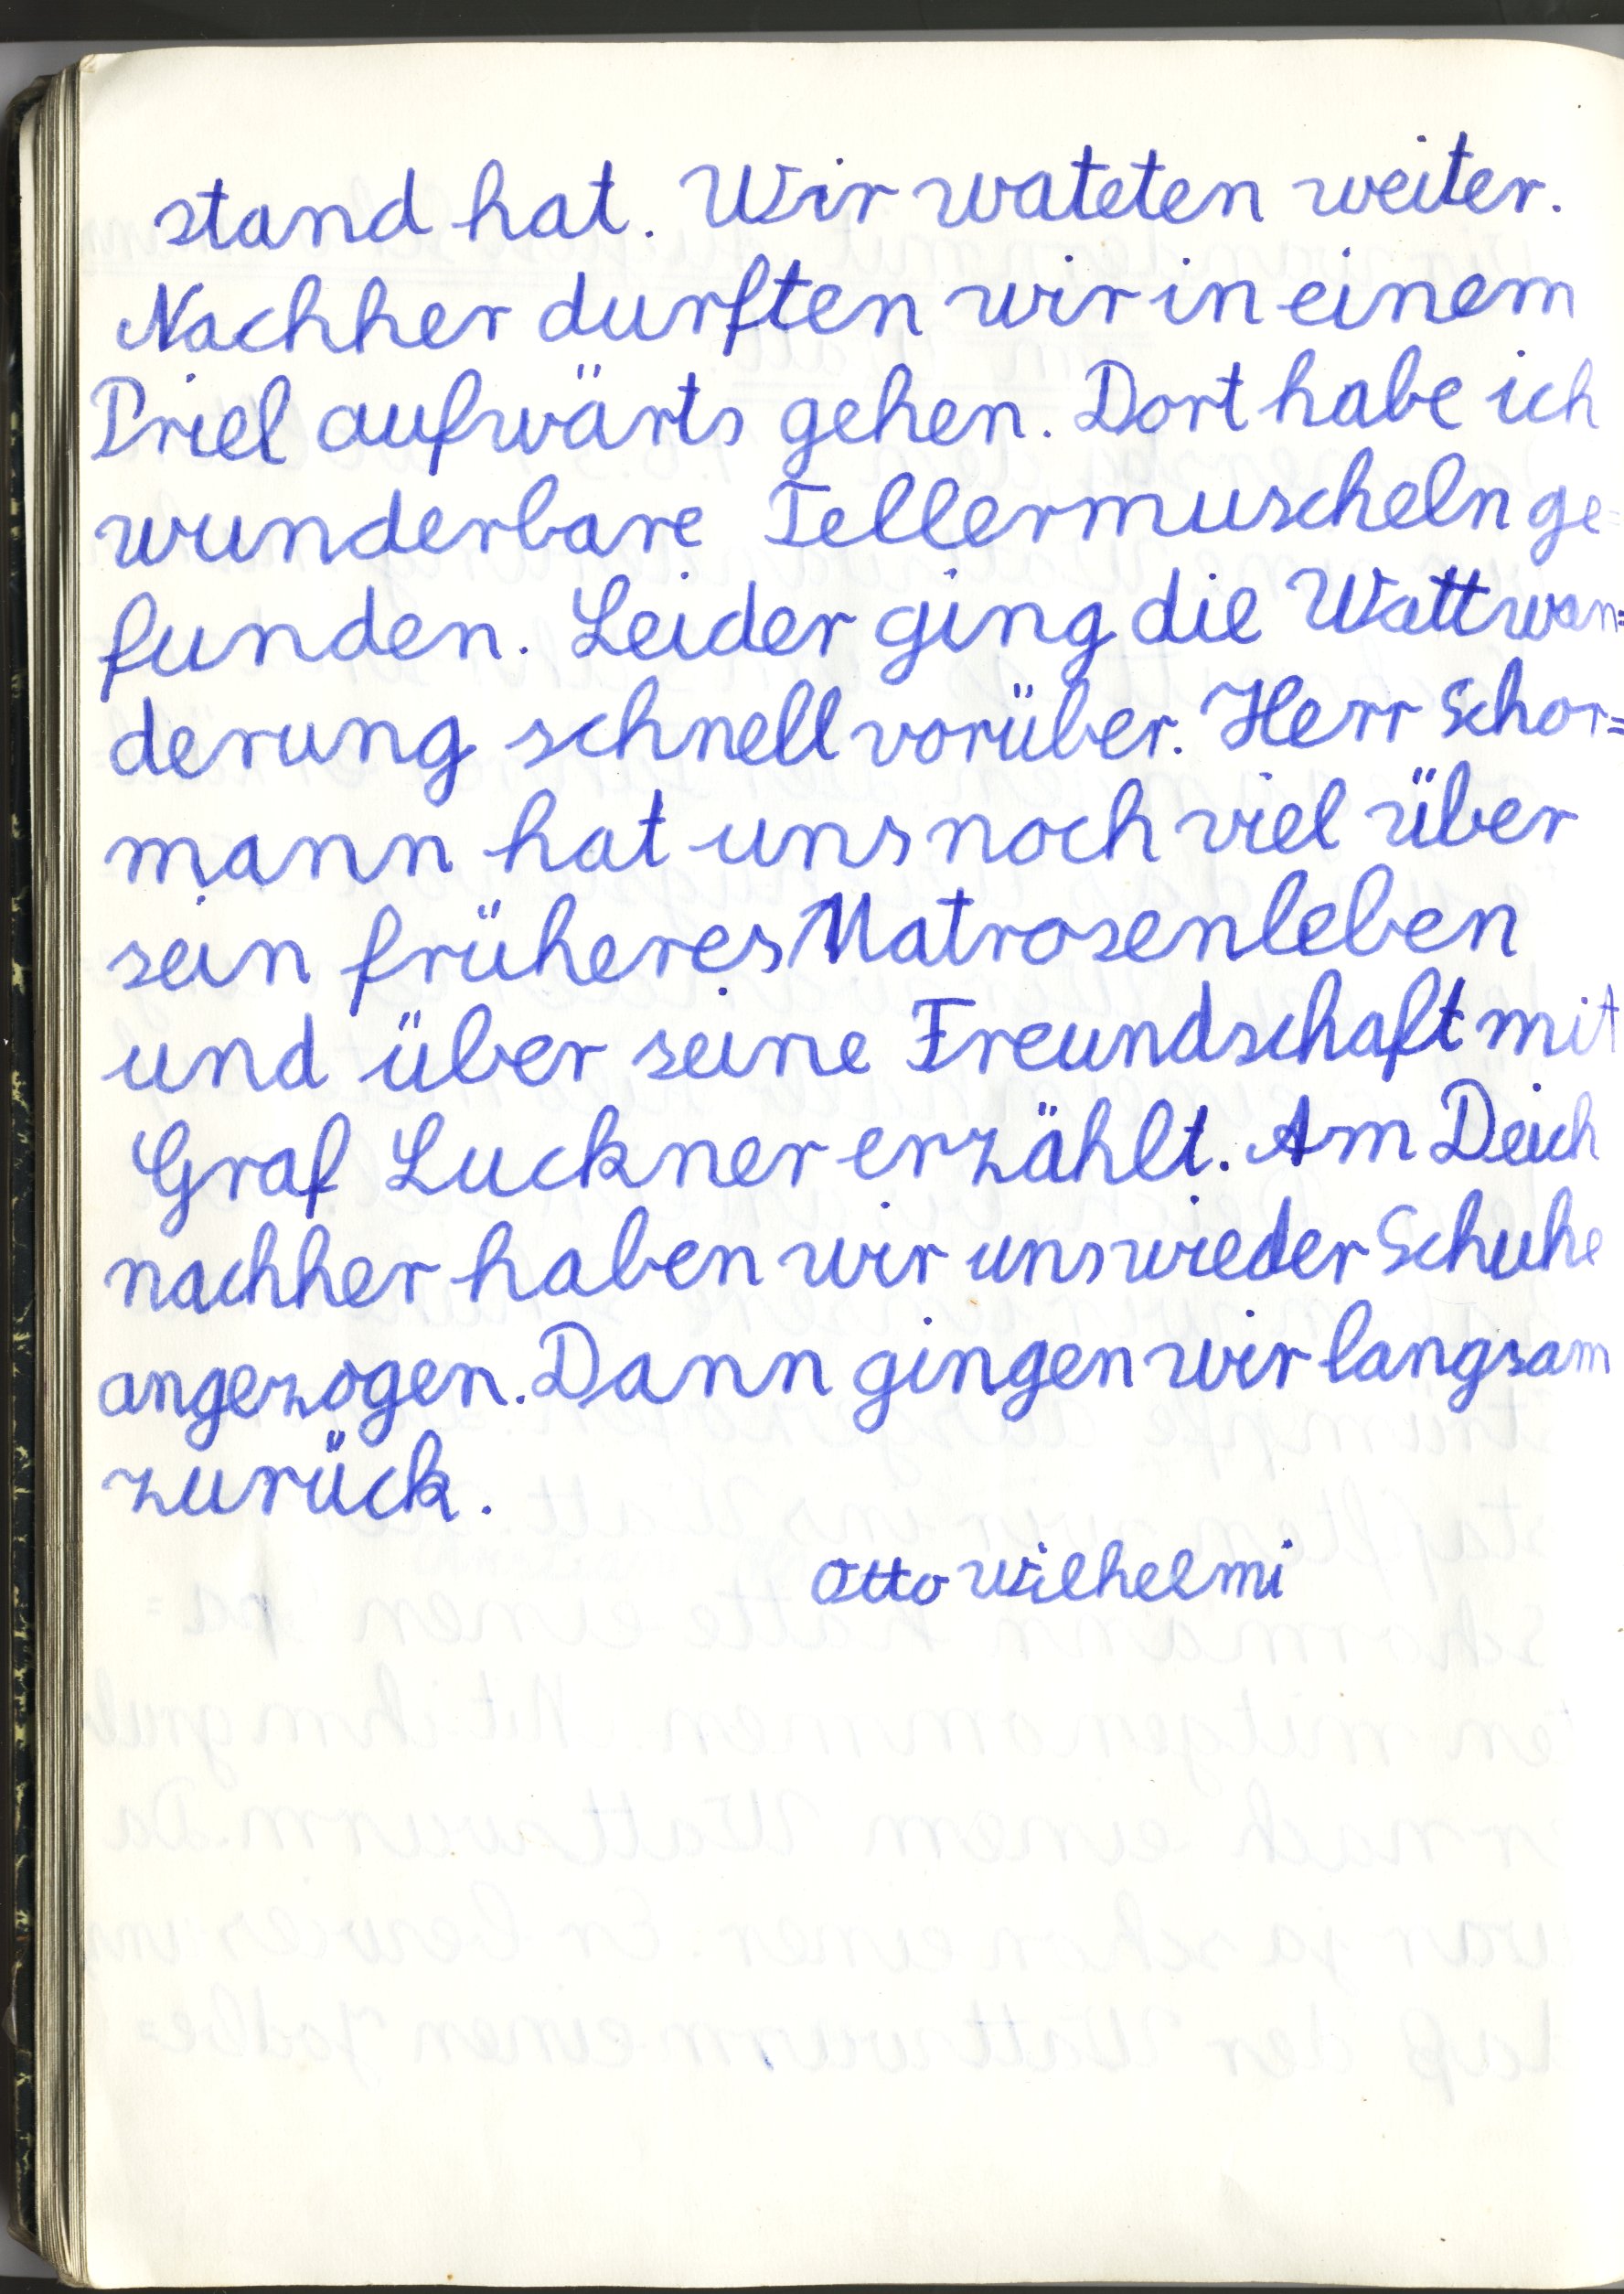 stand hat. Wir wateten weiter.
Nachher durften wir in einem
Priel aufwärts gehen. Dort habe ich
wunderbare Tellermuscheln ge=
funden. Leider ging die Wattwan=
derung schnell vorüber. Herr Schor=
mann hat uns noch viel über
sein früheres Matrosenleben
und über seine Freundschaft mit
Graf Luckner erzählt. Am Deich
nachher haben wir uns wieder Schuhe
angezogen. Dann gingen wir langsam
zurück.
Otto Wilhelmi